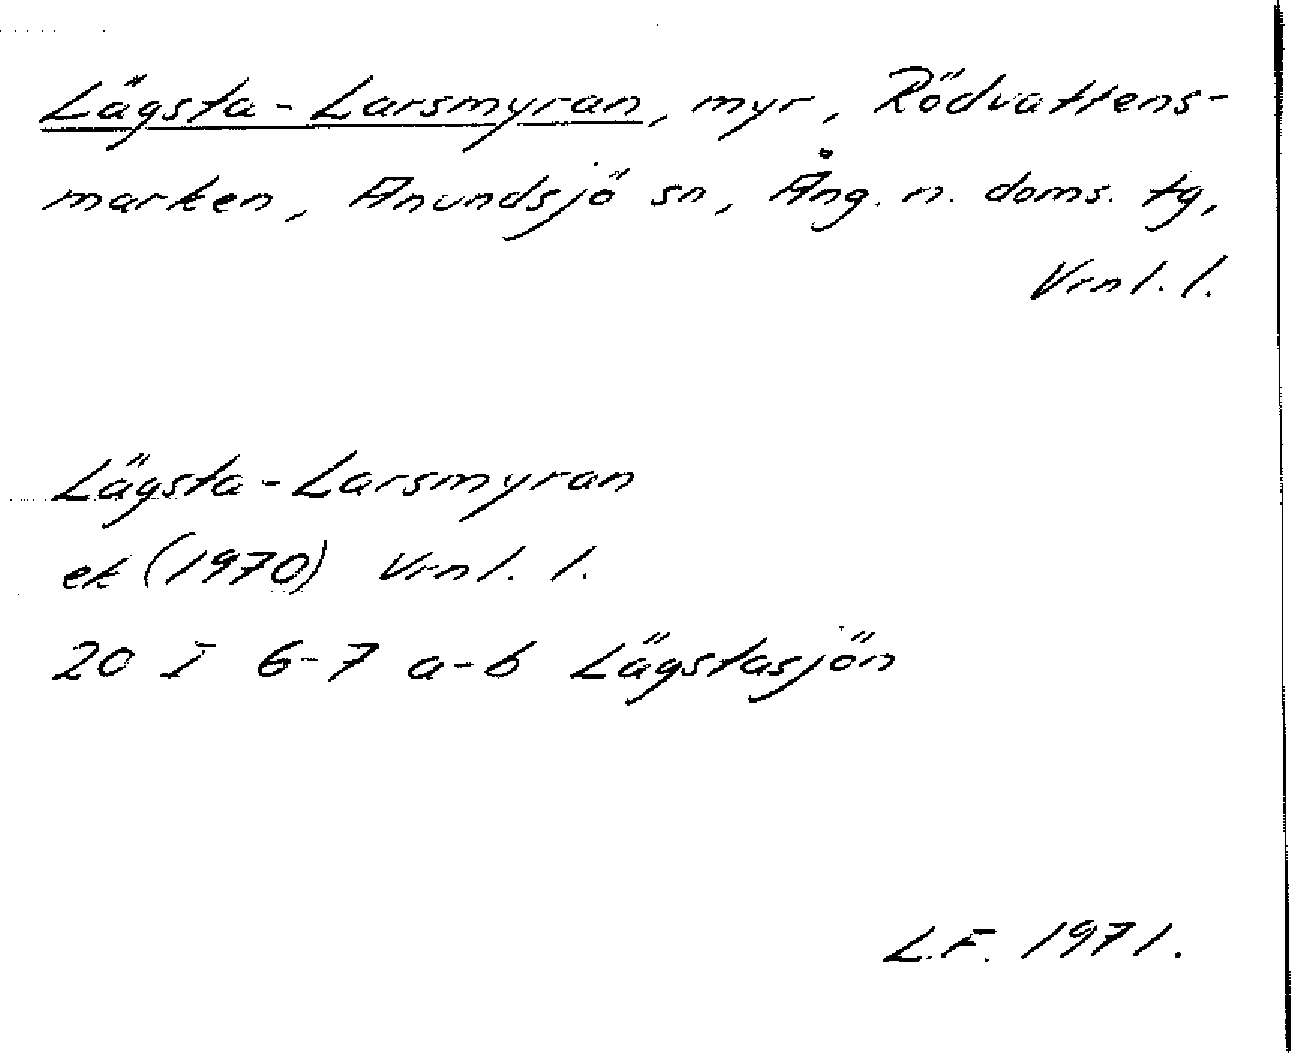 Lägsta-Larsmyran, myr, Rödvattens-
marken, Anundsjö sn, Ång. n. doms. tg,
Vrnl. l.
Lägsta-Larsmyran
ek (1970) Vrnl. l.
20 I 6-7 a-b Lägstasjön
L.F. 1971.